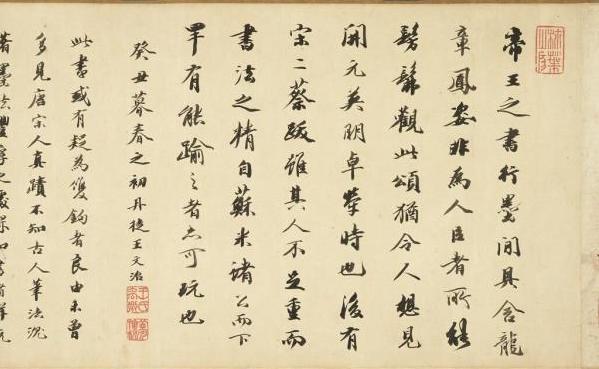 柿葉山房
帝王之書行墨間具含龍
章鳳姿非為人臣者所能
髣髴觀此頌猶令人想見
開元英明卓犖時也後有
宋二蔡跋雖其人不足重而
書法之精自蘇米諸公而下
罕有能踰之者亦可玩也
癸丑暮春之初丹徒王文治
此書或有疑為雙鉤者良由未曾
多見唐宋人真蹟不知古人筆法沉
著墨法豐厚之處